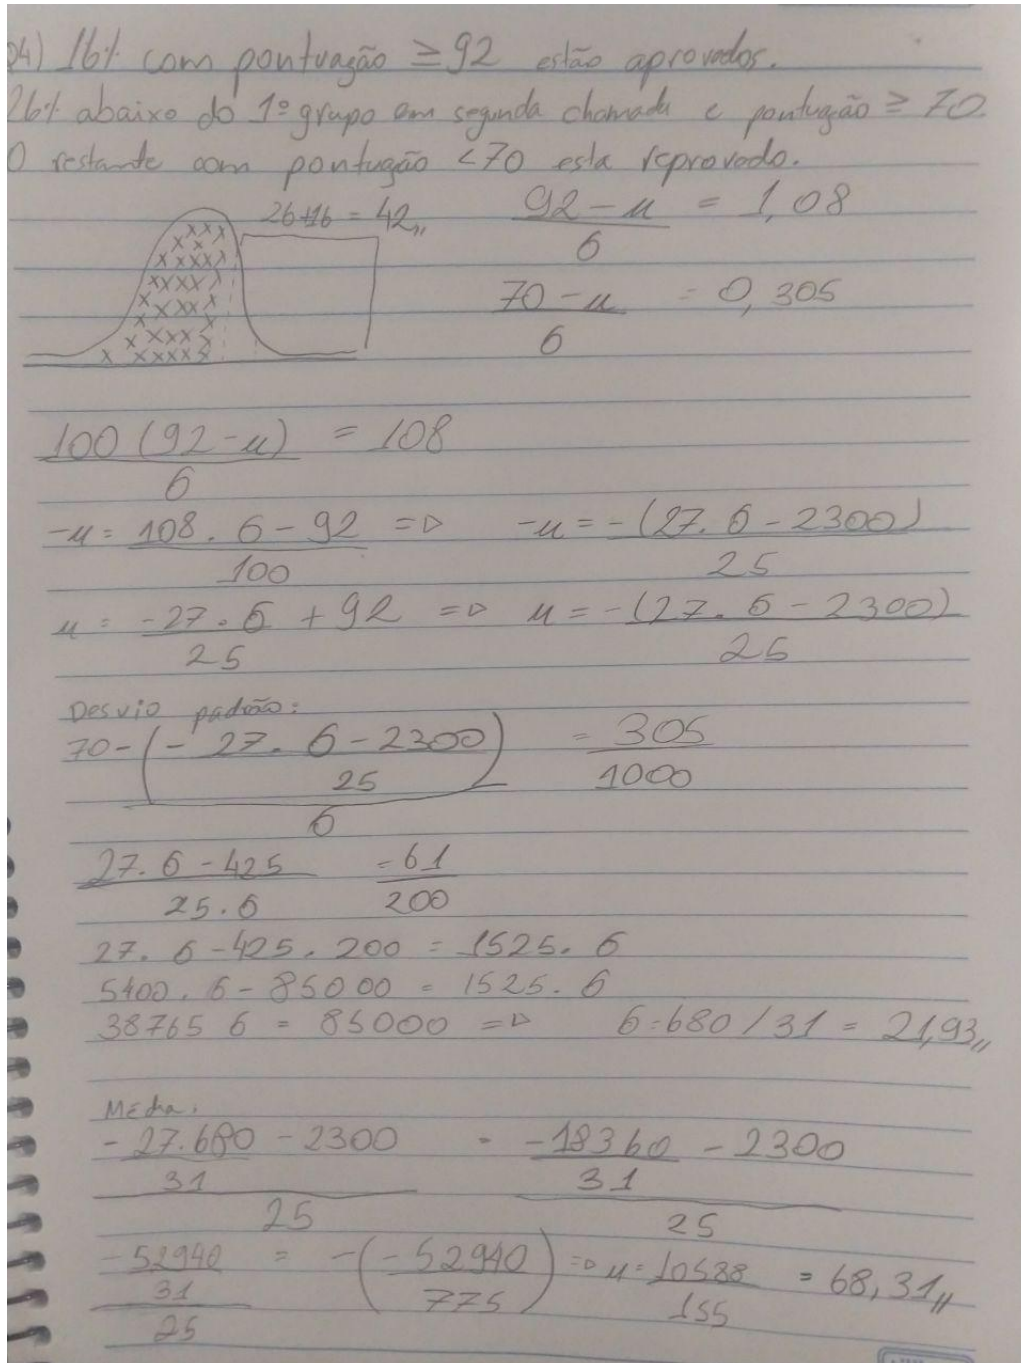 04) 16% com pontuação ≥ 92 estão aprovados.
26% abaixo do 1º grupo em segunda chamada e pontução ≥ 70.
O restante com pontução < 70 esta reprovado.
26+16 = 42,,
(92 - u)/6 = 1,08
(70 - u)/6 = 0,305
100 (92 - u)/6 = 108
-u = (108 . 6 - 92)/100 => -u = -(27. 6 - 2300)/25
u = -27. 6/25 + 92 => u = -(27. 6 - 2300)/25
Desvio padrão:
70 - (- 27. 6 - 2300/25)/6 = 305/1000
(27. 6 - 425)/(25. 6) = 61/200
27. 6 - 425. 200 = 1525. 6
5400. 6 - 85000 = 1525. 6
38765 6 = 85000 => 6 = 680 / 31 = 21,93,,
Média:
(-27.680/31 - 2300)/25 = (-18360/31 - 2300)/25
(-52940/31)/25 = -(-52940/775) => u = 10588/155 = 68,31,,